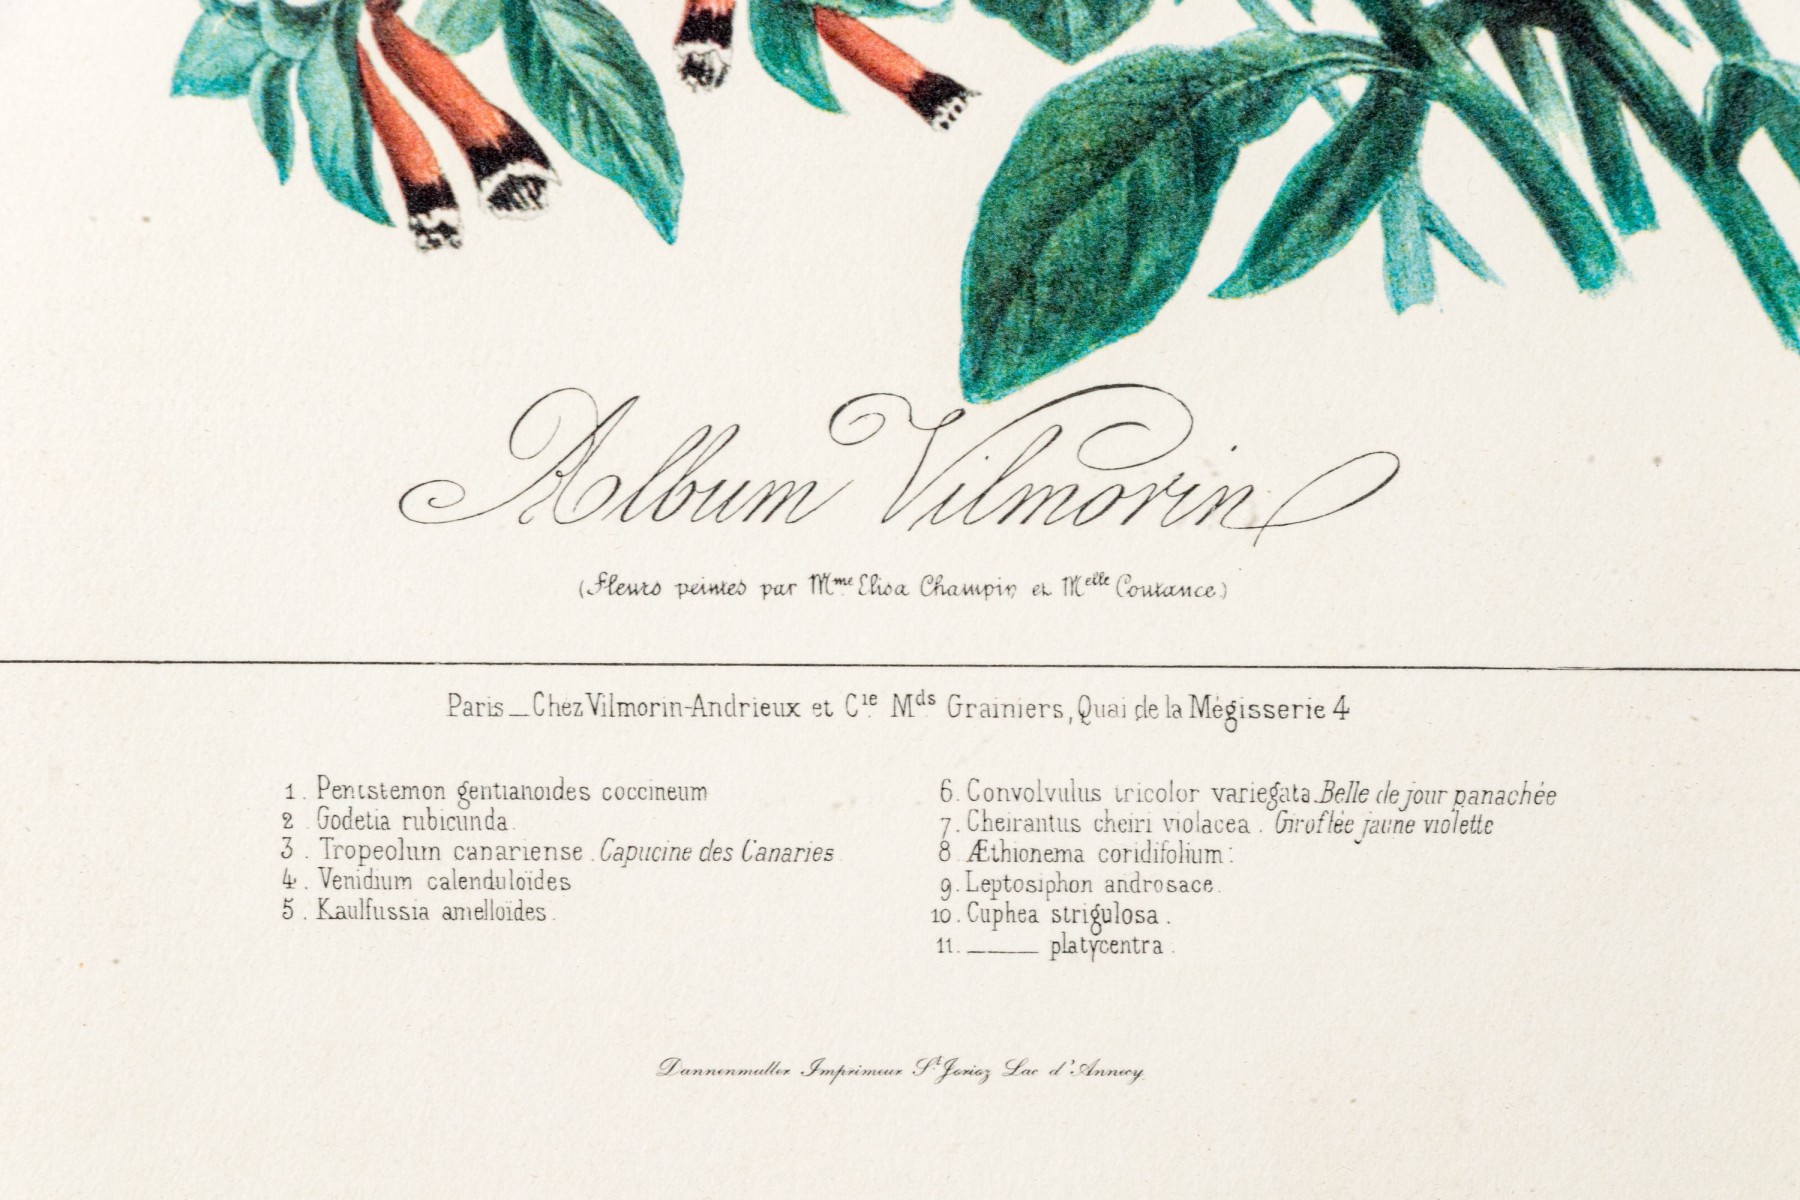 Album Vilmorin
(Fleurs peintes par Mme Elisa Champin et Melle Coutance.)
Paris _ Chez Vilmorin-Andrieux et Cie. Mds. Grainiers, Quai de la Mégisserie 4
1. Penstemon gentianoides coccineum
2. Godetia rubicunda.
3. Tropeolum canariense. Capucine des Canaries.
4. Venidium calenduloïdes
5. Kaulfussia amelloïdes.
6. Convolvulus tricolor variegata. Belle de jour panachée
7. Cheirantus cheiri violacea. Giroflée jaune violette
8. Æthionema coridifolium:
9. Leptosiphon androsace.
10. Cuphea strigulosa.
11. ____ platycentra.
Dannenmuller Imprimeur St. Jorioz Lac d'Annecy.